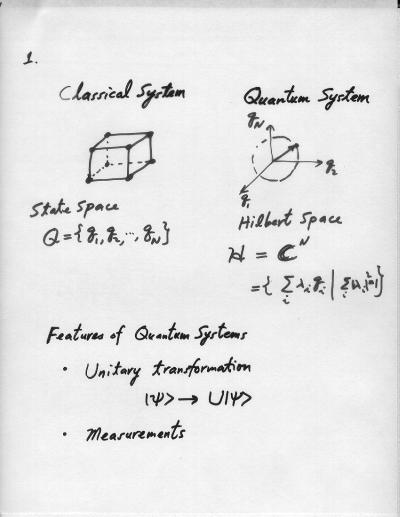 1.
Classical System
Quantum System
q_N
q_2
q_1
State Space
Q = {q_1, q_2, ..., q_N}
Hilbert Space
H = C^N
= { Σ_i λ_i q_i | Σ_i |λ_i|^2 = 1 }
Features of Quantum Systems
• Unitary transformation
|Ψ> → U|Ψ>
• Measurements